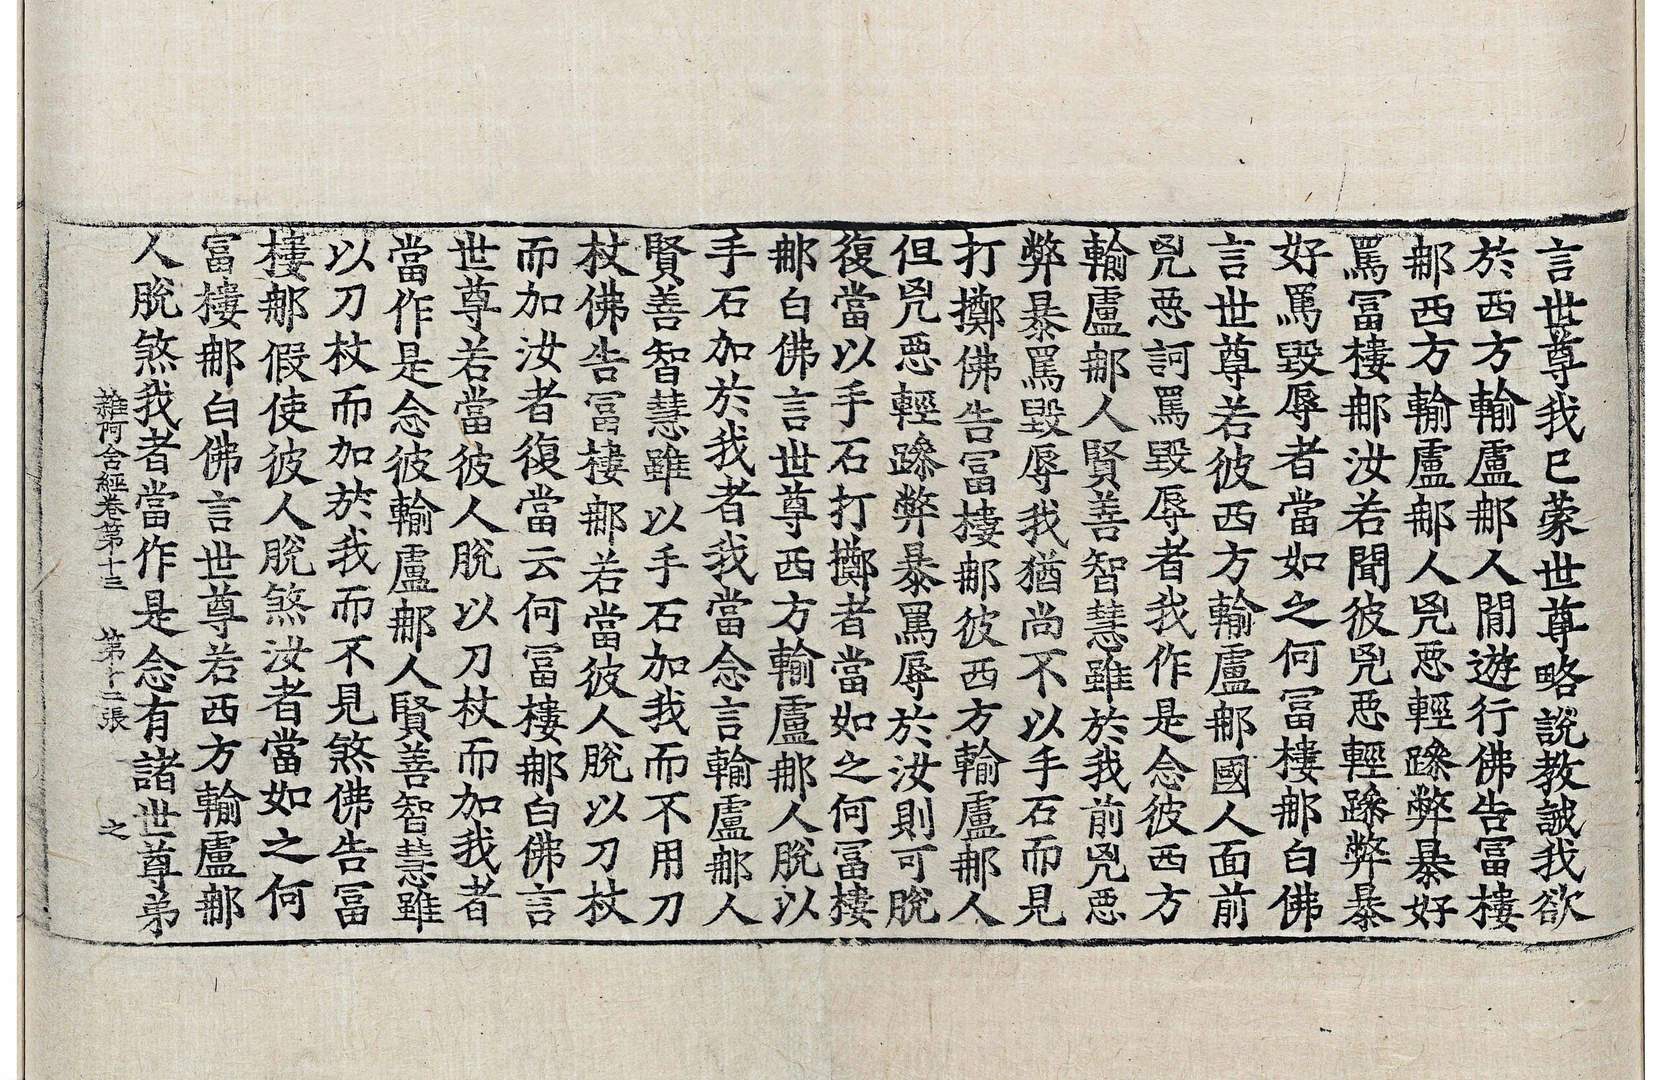 言世尊我已蒙世尊略說教誡我欲
於西方輸盧郍人閒遊行佛告冨樓
郍西方輸盧郍人兇惡輕躁弊暴好
罵冨樓郍汝若聞彼兇惡輕躁弊暴
好罵毀辱者當如之何冨樓郍白佛
言世尊若彼西方輸盧郍國人面前
兇惡訶罵毀辱者我作是念彼西方
輸盧郍人賢善智慧雖於我前兇惡
弊暴罵毀辱我猶尚不以手石而見
打擲佛告冨樓郍彼西方輸盧郍人
但兇惡輕躁弊暴罵辱於汝則可脫
復當以手石打擲者當如之何冨樓
郍白佛言世尊西方輸盧郍人脫以
手石加於我者我當念言輸盧郍人
賢善智慧雖以手石加我而不用刀
杖佛告冨樓郍若當彼人脫以刀杖
而加汝者復當云何冨樓郍白佛言
世尊若當彼人脫以刀杖而加我者
當作是念彼輸盧郍人賢善智慧雖
以刀杖而加於我而不見煞佛告冨
樓郍假使彼人脫煞汝者當如之何
冨樓郍白佛言世尊若西方輸盧郍
人脫煞我者當作是念有諸世尊弟
雜阿含經卷第十三 第十二張 之